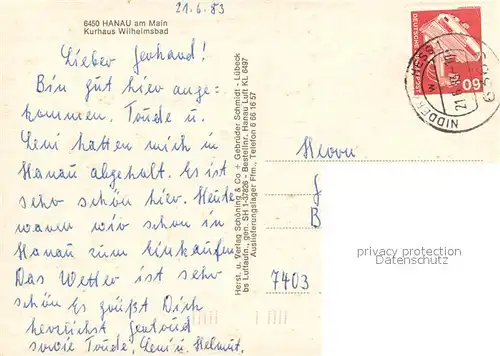 21.6.83
6450 HANAU am Main
Kurhaus Wilhelmsbad
Lieber Gerhard!
Bin gut hier ange-
kommen. Traude u.
Leni hatten mich in
Hanau abgehalt. Es ist
sehr schön hier. Heute
waren wir schon in
Hanau zum Einkaufen
Das Wetter ist sehr
schön Es grüßt Dich
herzlichst Gertrud
sowie Traude, Leni u. Helmut.
Herst. u. Verlag Schöning & Co + Gebrüder Schmidt · Lübeck
bs Luftaufn., gen. SH 1-37/826 - Bestellnr. Hanau Luft KL 6497
Auslieferungslager Ffm., Telefon 6 66 16 57
DEUTSCHE BUNDESPOST
60
NIDDER
21.6.83
Herrn
G
B
7403
privacy protection
Datenschutz